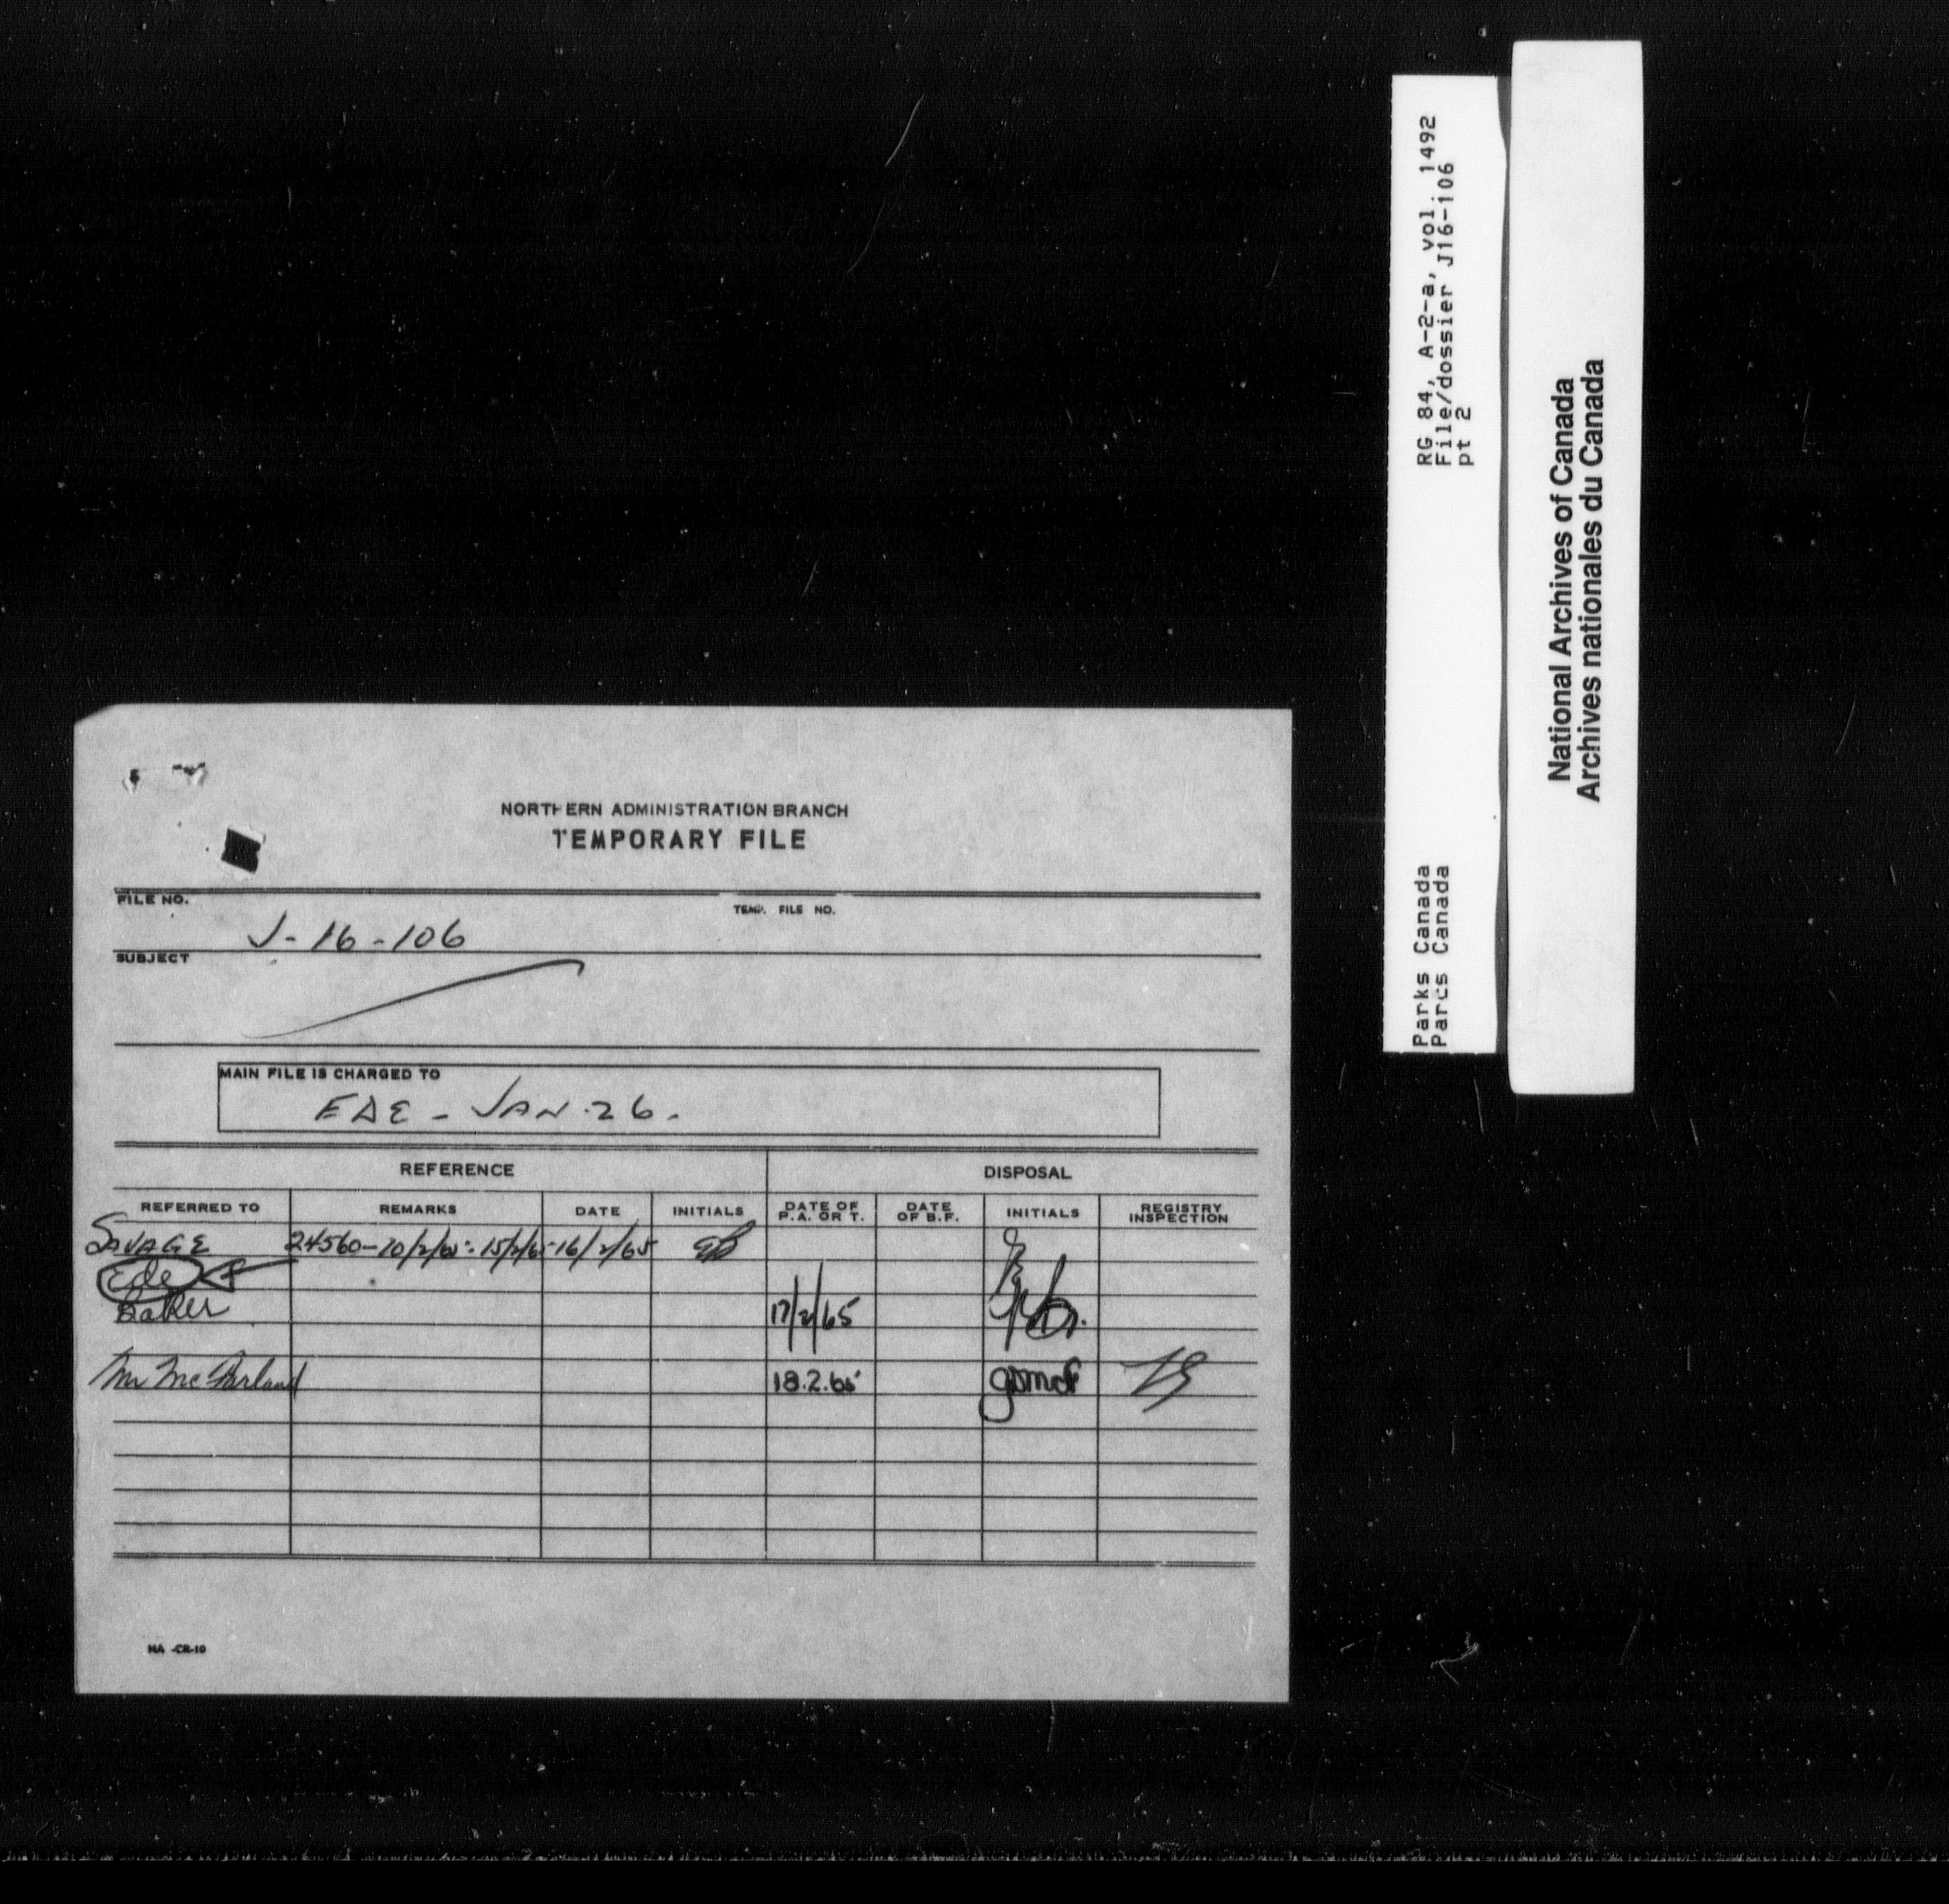 RG 84, A-2-a, vol. 1492
File/dossier J16-106
pt 2
Parks Canada
Parcs Canada
National Archives of Canada
Archives nationales du Canada
NORTHERN ADMINISTRATION BRANCH
TEMPORARY FILE
FILE NO.
TEMP. FILE NO.
J-16-106
SUBJECT
MAIN FILE IS CHARGED TO
EDE - JAN. 26.
REFERENCE
DISPOSAL
REFERRED TO
REMARKS
DATE
INITIALS
DATE OF P.A. OR T.
DATE OF B.F.
INITIALS
REGISTRY INSPECTION
SAVAGE 24560-10/2/65-15/2/65 16/2/65
Ede
Baker 17/2/65
Mr McFarland 18.2.65
NA -CR-10